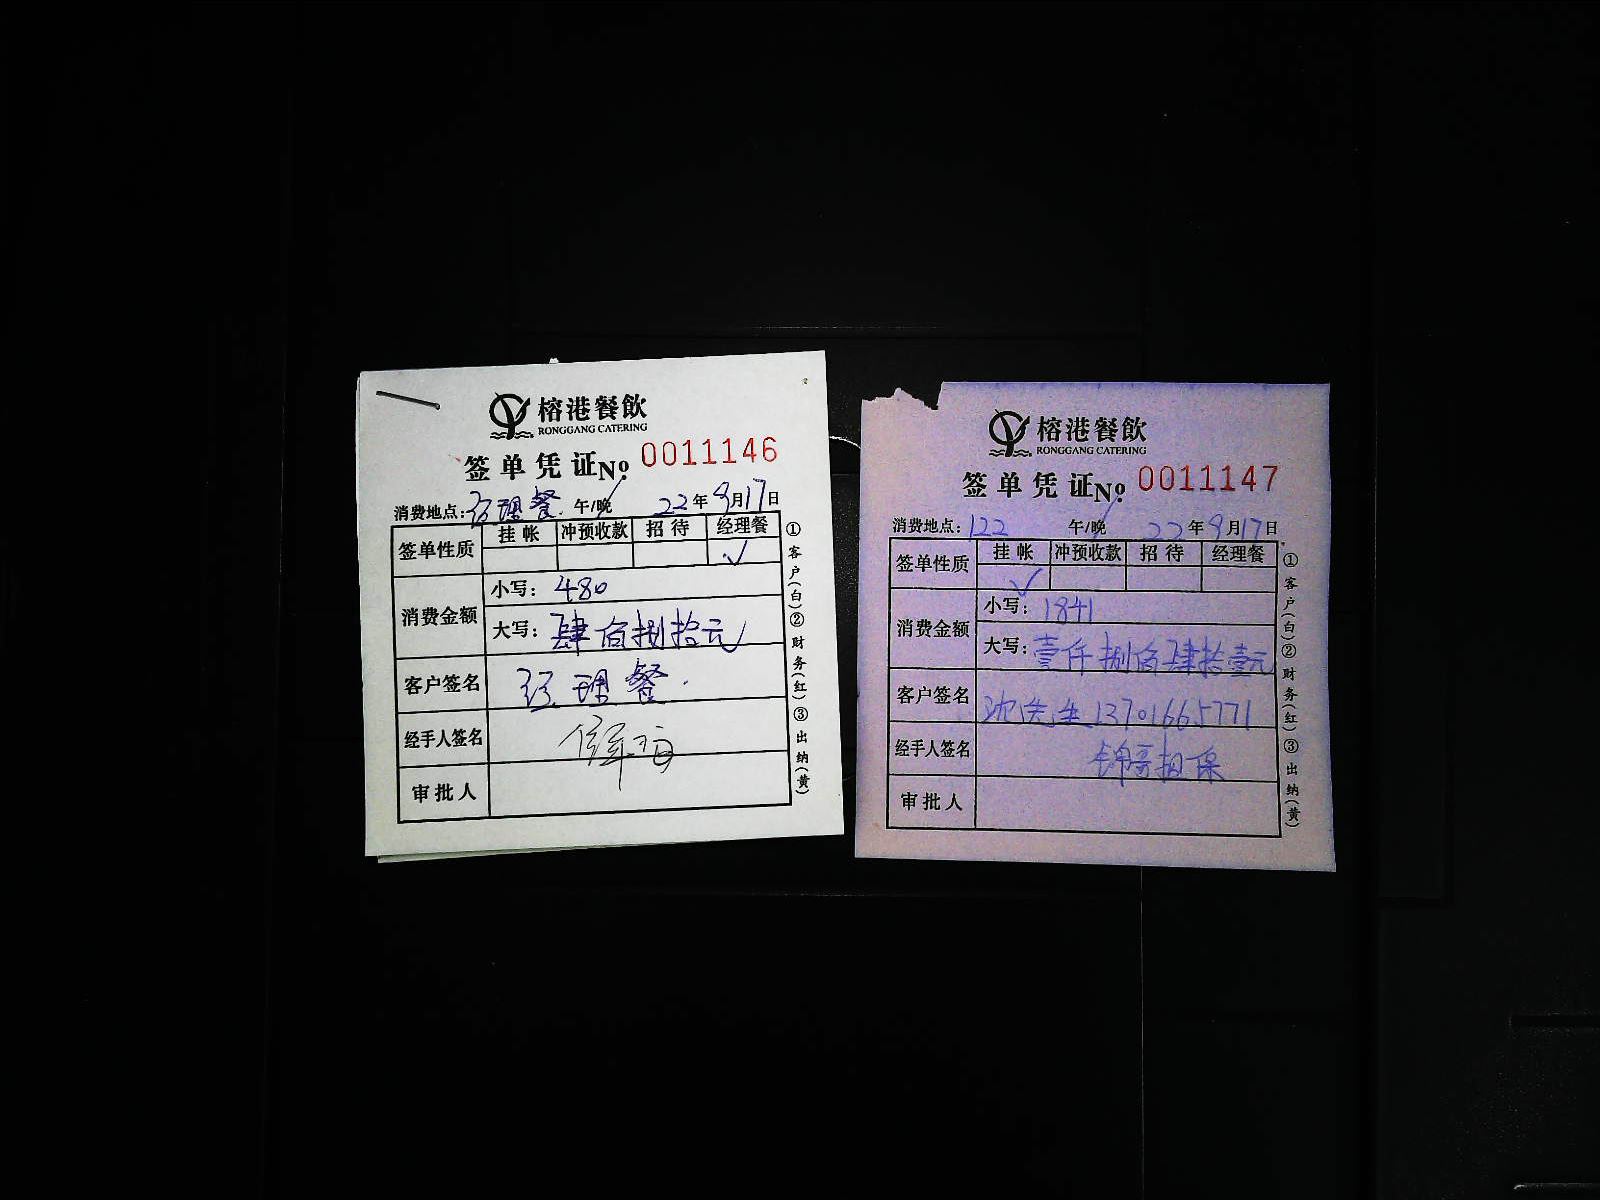 榕港餐飲
RONGGANG CATERING
签单凭证№ 0011146
消费地点：经理餐 午/晚 22年9月17日
签单性质 挂帐 冲预收款 招待 经理餐
✓
消费金额 小写：480
大写：肆佰捌拾元
客户签名 经理餐
经手人签名
审批人
①客户（白）②财务（红）③出纳（黄）
榕港餐飲
RONGGANG CATERING
签单凭证№ 0011147
消费地点：122 午/晚 22年9月17日
签单性质 挂帐 冲预收款 招待 经理餐
✓
消费金额 小写：1841
大写：壹仟捌佰肆拾壹元
客户签名 沈先生 13701665771
经手人签名 锦哥担保
审批人
①客户（白）②财务（红）③出纳（黄）